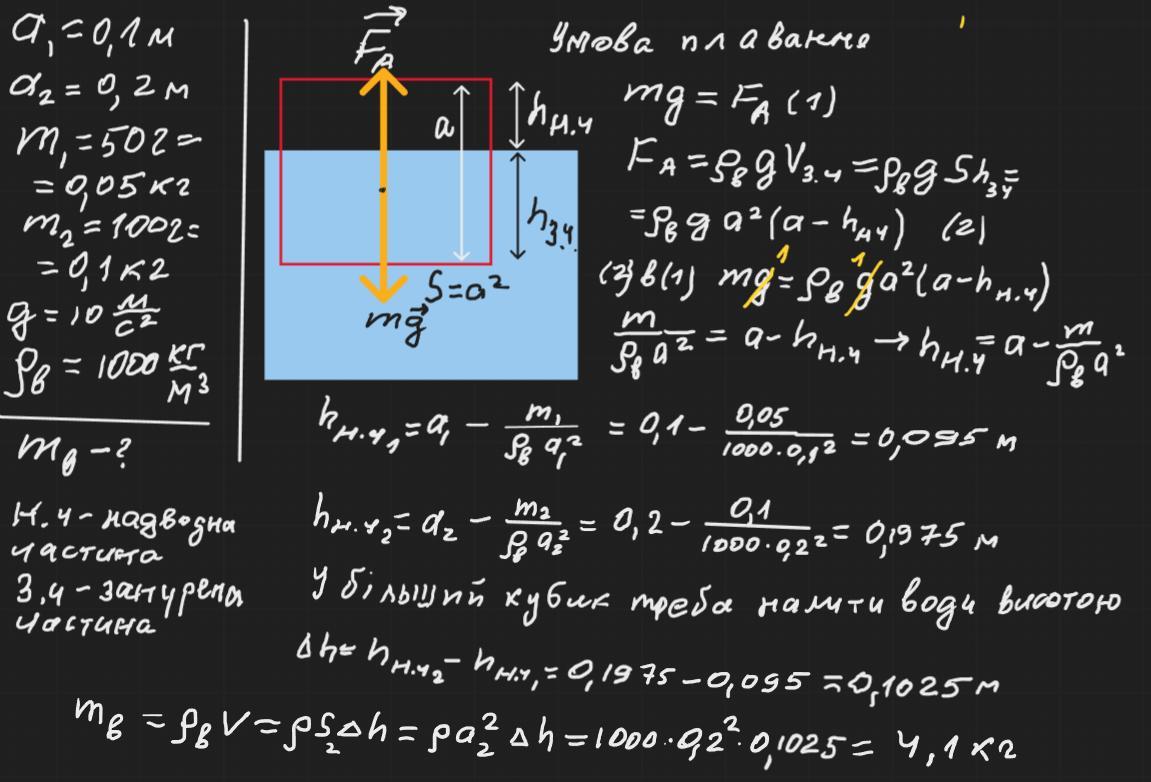 a₁ = 0,1 м
a₂ = 0,2 м
m₁ = 50г =
= 0,05 кг
m₂ = 100г =
= 0,1 кг
g = 10 м/с²
ρв = 1000 кг/м³
mв - ?
Н.ч - надводна
частина
З.ч - занурена
частина
F⃗A
a
hн.ч
hз.ч.
S = a²
mg⃗
Умова плавання
mg = FA (1)
FA = ρв g Vз.ч = ρв g S hзч =
= ρв g a² (a - hнч) (2)
(2) в (1) mg¹ = ρв g¹ a² (a - hн.ч)
m/(ρв a²) = a - hн.ч → hн.ч = a - m/(ρв a²)
hн.ч₁ = a₁ - m₁/(ρв a₁²) = 0,1 - 0,05/(1000·0,1²) = 0,095 м
hн.ч₂ = a₂ - m₂/(ρв a₂²) = 0,2 - 0,1/(1000·0,2²) = 0,1975 м
У більший кубик треба налити води висотою
Δh = hн.ч₂ - hн.ч₁ = 0,1975 - 0,095 = 0,1025 м
mв = ρв V = ρ S₂ Δh = ρ a₂² Δh = 1000·0,2²·0,1025 = 4,1 кг